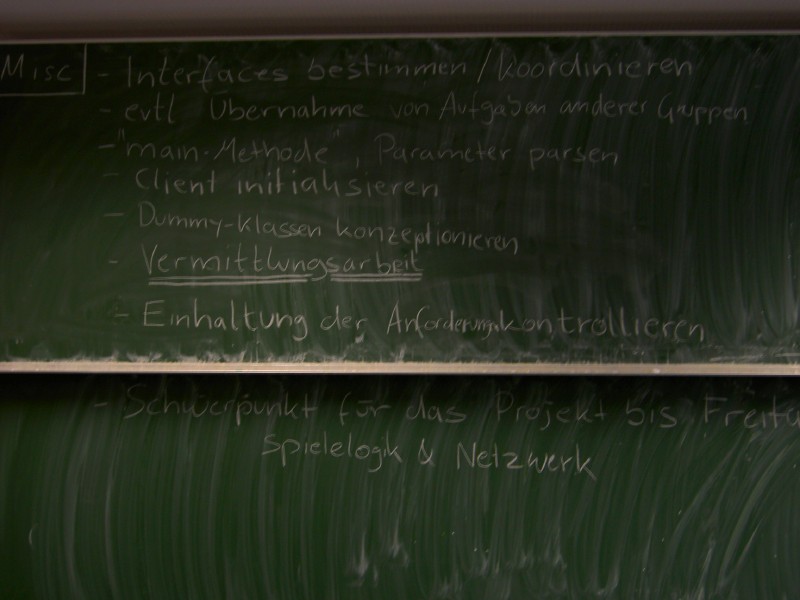 Misc - Interfaces bestimmen / koordinieren
- evtl Übernahme von Aufgaben anderer Gruppen
- "main-Methode", Parameter parsen
- Client initialisieren
- Dummy-Klassen konzeptionieren
- Vermittlungsarbeit
- Einhaltung der Anforderungen kontrollieren
- Schwerpunkt für das Projekt bis Freita
Spielelogik & Netzwerk